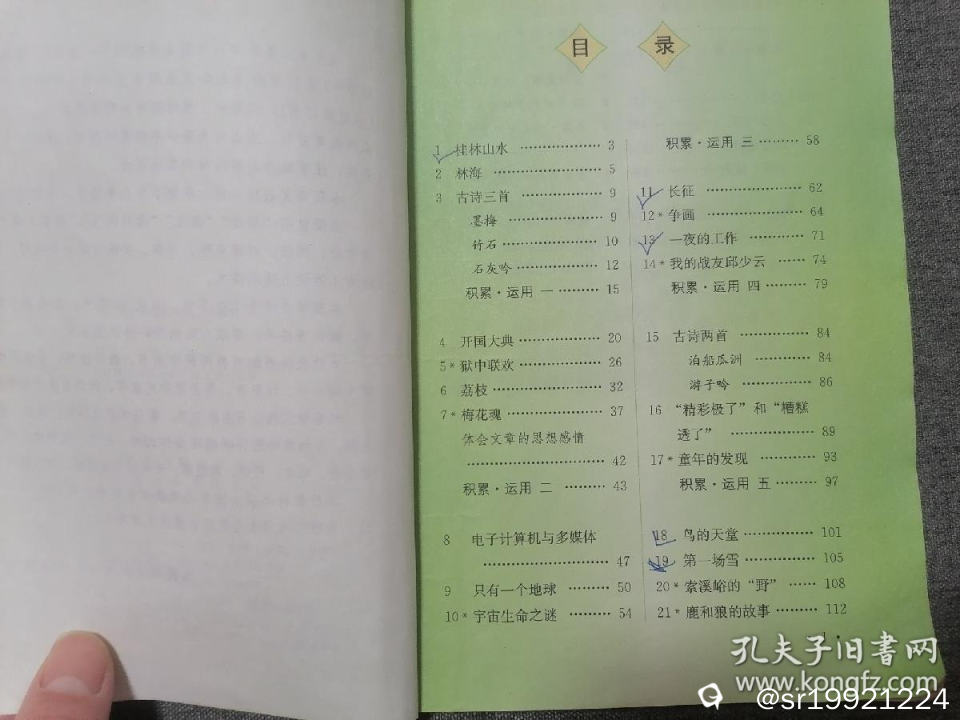 目录
1 桂林山水 ………………… 3
2 林海 ……………………… 5
3 古诗三首 ………………… 9
墨梅 ……………………… 9
竹石 ……………………… 10
石灰吟 …………………… 12
积累·运用 一 ………… 15
4 开国大典 ……………… 20
5* 狱中联欢 ……………… 26
6 荔枝 …………………… 32
7* 梅花魂 ………………… 37
体会文章的思想感情
………………………… 42
积累·运用 二 ……… 43
8 电子计算机与多媒体
………………………… 47
9 只有一个地球 ………… 50
10* 宇宙生命之谜 ……… 54
积累·运用 三 ……… 58
11 长征 ………………… 62
12* 争画 ………………… 64
13 一夜的工作 ………… 71
14* 我的战友邱少云 …… 74
积累·运用 四 ……… 79
15 古诗两首 …………… 84
泊船瓜洲 …………… 84
游子吟 ……………… 86
16 “精彩极了”和“糟糕
透了” ……………… 89
17* 童年的发现 ………… 93
积累·运用 五 ……… 97
18 鸟的天堂 …………… 101
19 第一场雪 …………… 105
20* 索溪峪的“野” …… 108
21* 鹿和狼的故事 ……… 112
1
孔夫子旧书网
www.kongfz.com
@sr19921224